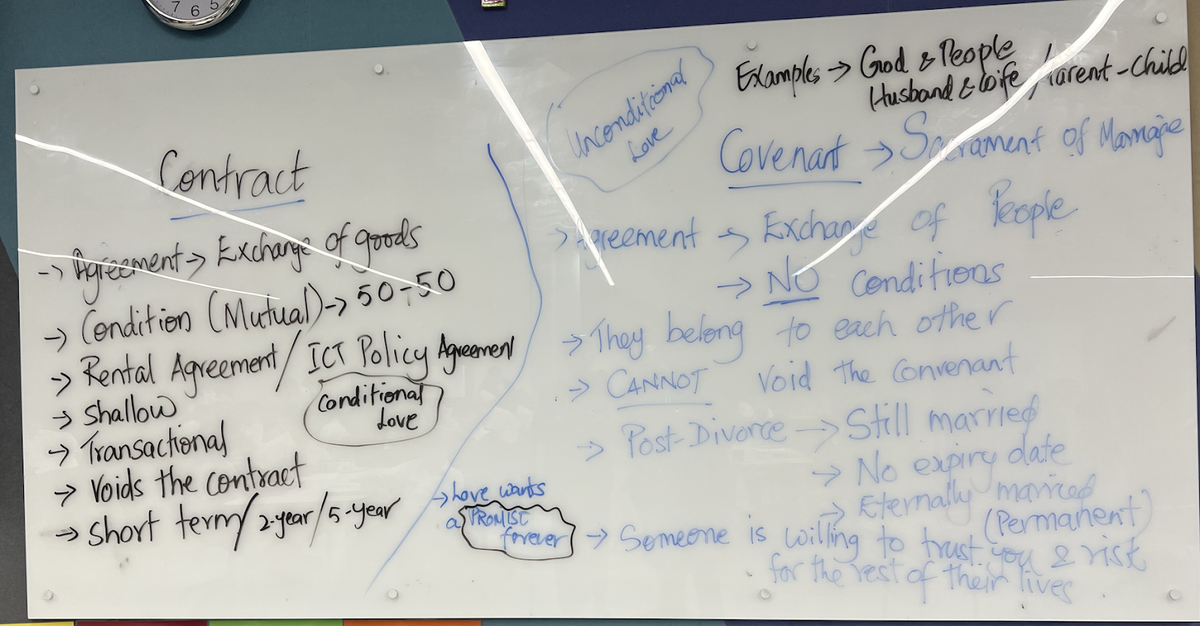 7 6 5
Contract
-> Agreement -> Exchange of goods
-> Condition (Mutual) -> 50-50
-> Rental Agreement / ICT Policy Agreement
-> Shallow
Conditional
Love
-> Transactional
-> Voids the contract
-> Short term / 2-year / 5-year
Unconditional
Love
Examples -> God & People
Husband & Wife / Parent-Child
Covenant -> Sacrament of Marriage
-> Agreement -> Exchange of People
-> NO Conditions
-> They belong to each other
-> CANNOT void the convenant
-> Post-Divorce -> Still married
-> No expiry date
-> Eternally married
(Permanent)
-> Love wants
a PROMISE
forever
-> Someone is willing to trust you & risk
for the rest of their lives